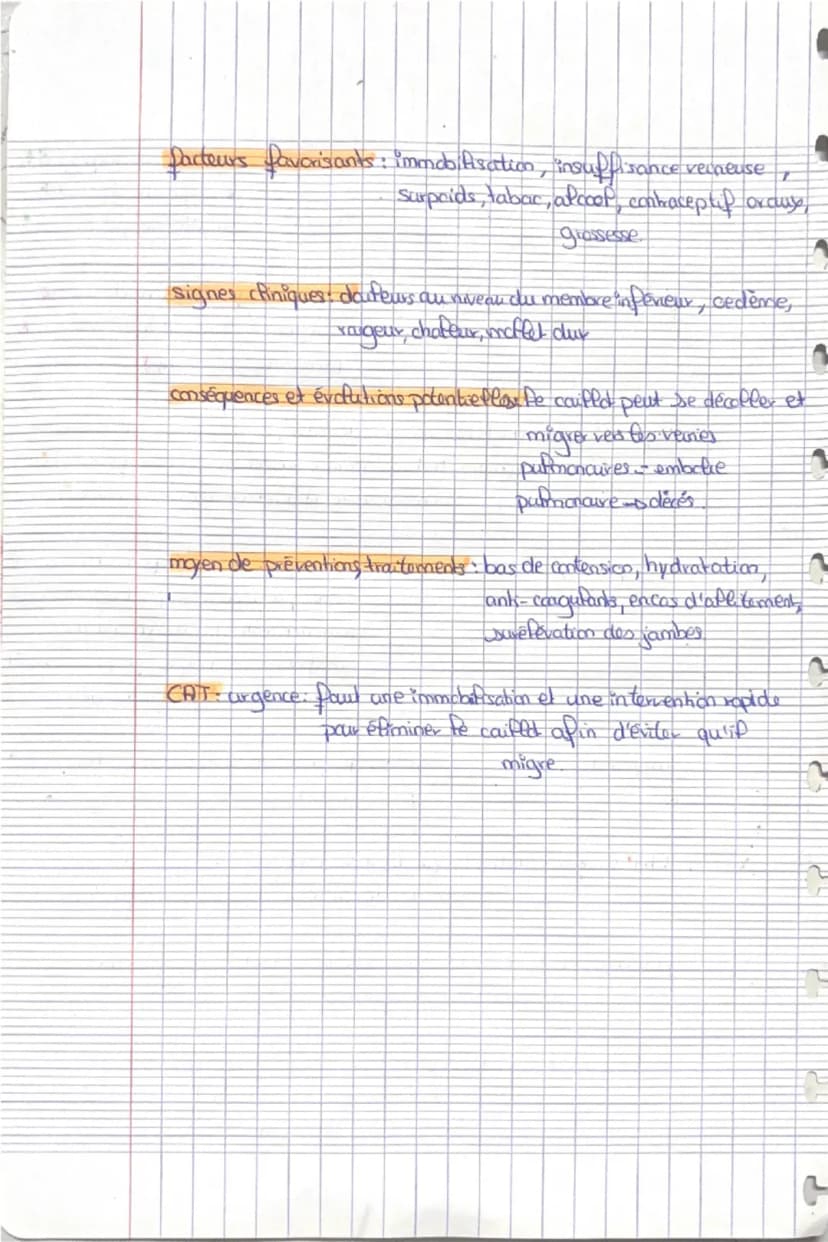 facteurs favorisants : immobilisation, insuffisance veineuse,
surpoids, tabac, alcool, contraceptif oraux,
grossesse.
signes cliniques : douleurs au niveau du membre inférieur, oedème,
rougeur, chaleur, mollet dur
conséquences et évolutions potentielles : le caillot peut se décoller et
migrer vers les veines
pulmonaires - embolie
pulmonaire → décés.
moyen de préventions, traitements : bas de contension, hydratation,
anti-coagulants, en cas d'alitement,
surélévation des jambes
CAT - urgence : faut une immobilisation et une intervention rapide
pour éliminer le caillot afin d'éviter qu'il
migre.